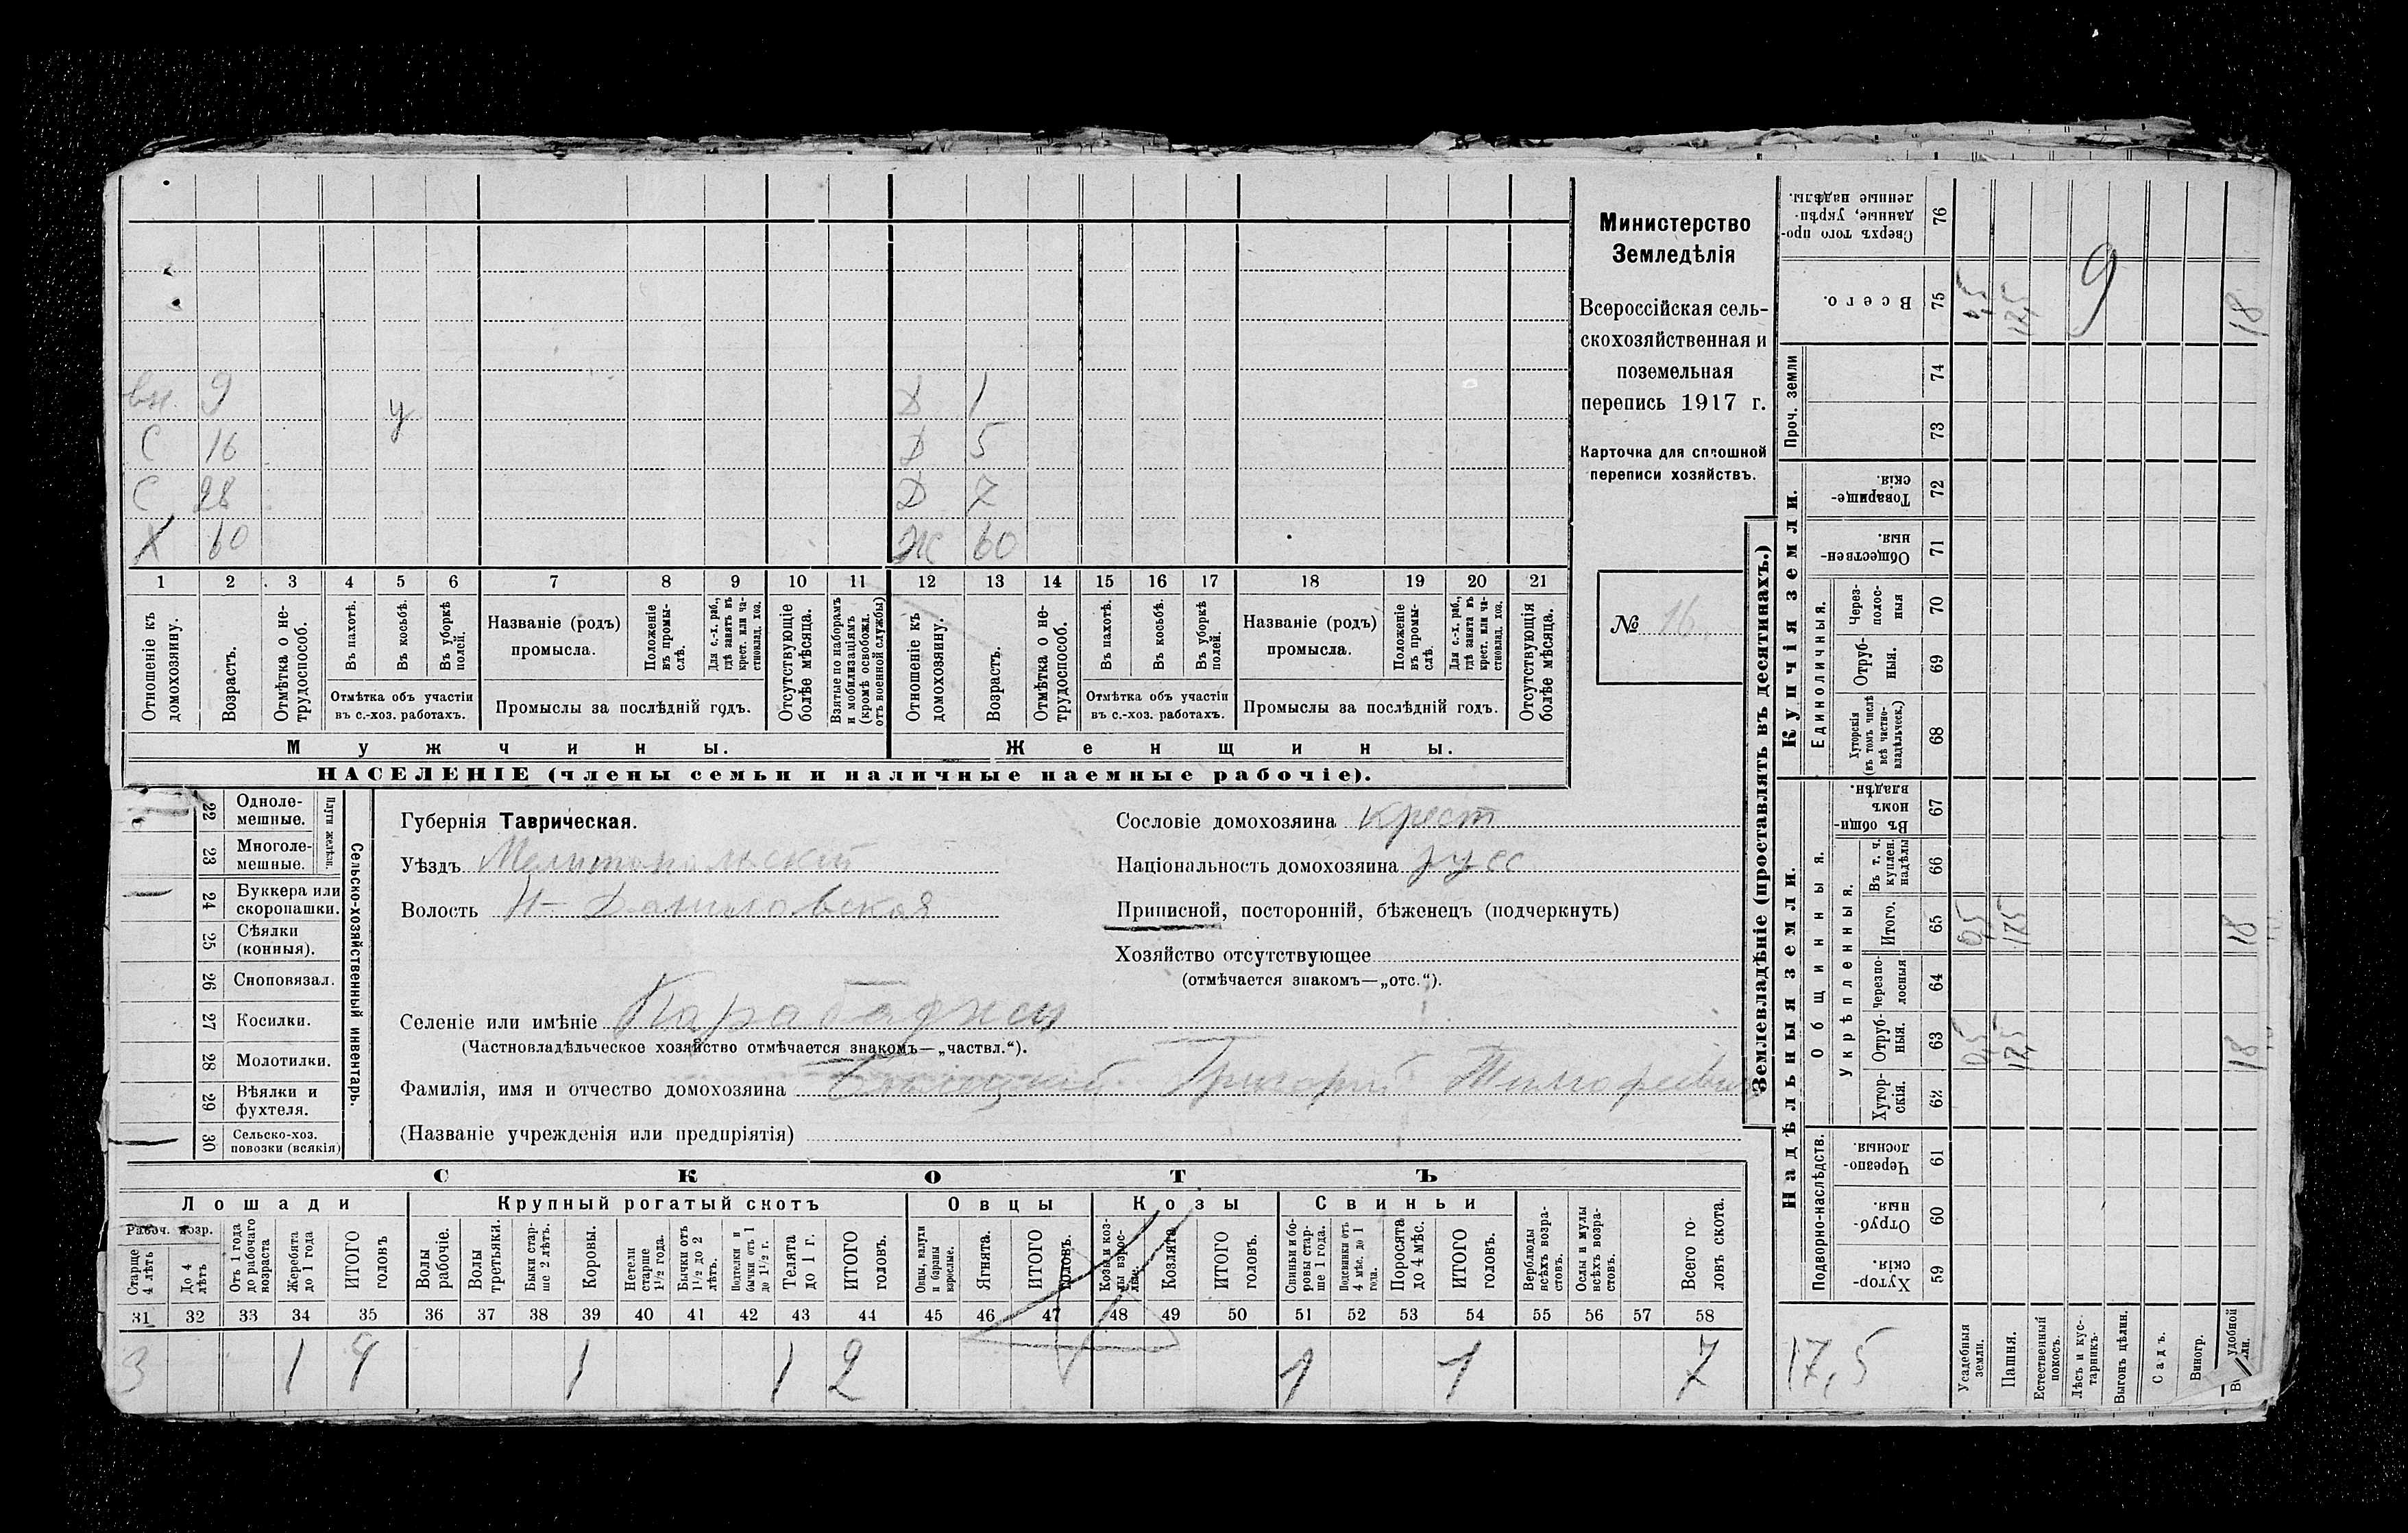 вн. 9 у Д 1
С 16 Д 5
С 28 Д 7
Х 60 Ж 60
1 2 3 4 5 6 7 8 9 10 11 12 13 14 15 16 17 18 19 20 21
Отношеніе къ домохозяину.
Возрастъ.
Отмѣтка о не-
трудоспособ.
Въ пахотѣ.
Въ косьбѣ.
Въ уборкѣ полей.
Отмѣтка объ участіи
въ с.-хоз. работахъ.
Названіе (родъ)
промысла.
Положеніе въ промы-
слѣ.
Для с.-х. раб., гдѣ занятъ въ крест. или ча-
стновлад. хоз.
Промыслы за послѣдній годъ.
Отсутствующіе болѣе мѣсяца.
Взятые по наборамъ и мобилизаціямъ (кромѣ освобожд. отъ военной службы)
Отношеніе къ домохозяину.
Возрастъ.
Отмѣтка о не-
трудоспособ.
Въ пахотѣ.
Въ косьбѣ.
Въ уборкѣ полей.
Отмѣтка объ участіи
въ с.-хоз. работахъ.
Названіе (родъ)
промысла.
Положеніе въ промы-
слѣ.
Для с.-х. раб., гдѣ занята въ крест. или ча-
стновлад. хоз.
Промыслы за послѣдній годъ.
Отсутствующія болѣе мѣсяца.
Мужчины. Женщины.
НАСЕЛЕНІЕ (члены семьи и наличные наемные рабочіе).
Министерство
Земледѣлія
Всероссійская сель-
скохозяйственная и
поземельная
перепись 1917 г.
Карточка для сплошной
переписи хозяйствъ.
№ 16
22 Одноле-
мешные.
23 Многоле-
мешные.
Плуги желѣзн.
24 Буккера или
скоропашки.
25 Сѣялки
(конныя).
26 Сноповязал.
27 Косилки.
28 Молотилки.
29 Вѣялки и
фухтеля.
30 Сельско-хоз.
повозки (всякія)
Сельско-хозяйственный инвентарь.
Губернія Таврическая.
Уѣздъ Мелитопольскій
Волость Н-Даниловская
Сословіе домохозяина крест
Національность домохозяина русс
Приписной, посторонній, бѣженецъ (подчеркнуть)
Хозяйство отсутствующее
(отмѣчается знакомъ—„отс.“).
Селеніе или имѣніе Карабаджы
(Частновладѣльческое хозяйство отмѣчается знакомъ—„частвл.“).
Фамилія, имя и отчество домохозяина Григорій Тимофеевич
(Названіе учрежденія или предпріятія)
СКОТЪ
Лошади Крупный рогатый скотъ Овцы Козы Свиньи
Рабоч. возр.
Старше 4 лѣтъ
До 4 лѣтъ
Отъ 1 года до рабочаго возраста
Жеребята до 1 года
ИТОГО головъ
Волы рабочіе.
Волы третьяки.
Быки стар-
ше 2 лѣтъ.
Коровы.
Нетели старше 1½ года.
Бычки отъ 1½ до 2 лѣтъ.
Подтелки и бычки отъ 1 до 1½ г.
Телята до 1 г.
ИТОГО головъ.
Овцы, валухи и бараны взрослые.
Ягнята.
ИТОГО головъ.
Козы и коз-
лы взрос-
лые.
Козлята
ИТОГО головъ.
Свиньи и бо-
ровы стар-
ше 1 года.
Подсвинки отъ 4 мѣс. до 1 года.
Поросята до 4 мѣс.
ИТОГО головъ.
Верблюды всѣхъ возра-
стовъ.
Ослы и мулы всѣхъ возра-
стовъ.
Всего го-
ловъ скота.
31 32 33 34 35 36 37 38 39 40 41 42 43 44 45 46 47 48 49 50 51 52 53 54 55 56 57 58
3 1 4 1 1 2 1 1 7
Землевладѣніе (проставлять въ десятинахъ.)
Сверхъ того про-
данные, укрѣп-
ленные надѣлы. 76
Всего. 75 17,5 9 18
Проч. земли 74
73
Купчія земли.
Товарище-
скія. 72
Обществен-
ныя. 71
Единоличныя.
Через-
полос-
ныя 70
Отруб-
ныя. 69
Хуторскія
(въ томъ числѣ
всѣ частно-
владѣльческ.) 68
Надѣльныя земли.
Общинныя.
Въ общи-
номъ
владѣн. 67
Укрѣпленныя.
Въ т. ч.
куплен.
надѣлы 66
Итого. 65 0,5 17,5 18
Черезпо-
лосныя 64
Отруб-
ныя. 63 0,5 17,5 18
Хутор-
скія. 62
Подворно-наслѣдств.
Черезпо-
лосныя. 61
Отруб-
ныя. 60
Хутор-
скія. 59
17,5
Усадебныя земли.
Пашня.
Естественный покосъ.
Лѣсъ и кус-
тарникъ.
Выгонъ цѣлин.
Садъ.
Виногр.
удобной